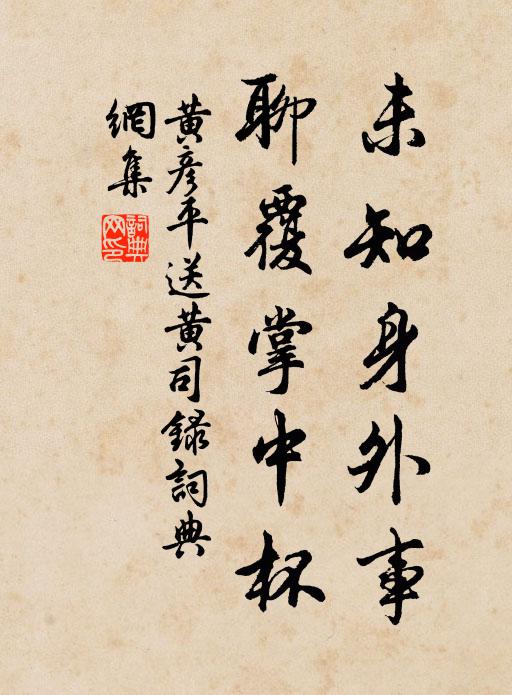 未知身外事
聊覆掌中杯
黄彦平送黄司録詞典
網集
詞典
网印